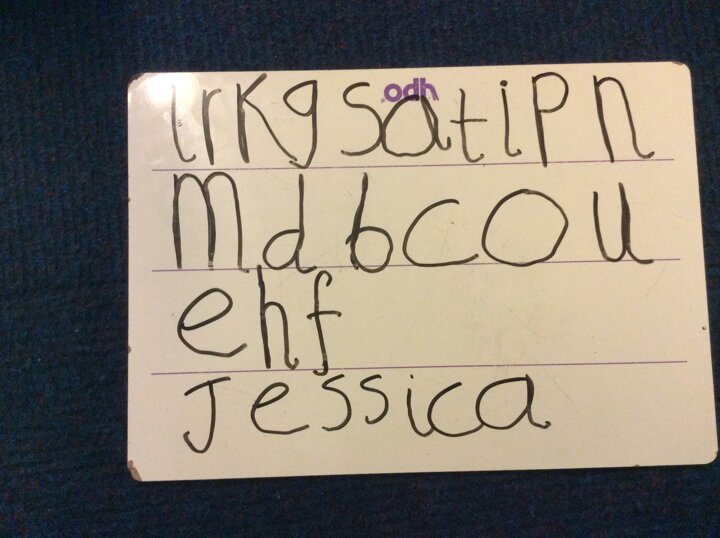 lrkgsatipn
mdbcou
ehf
Jessica